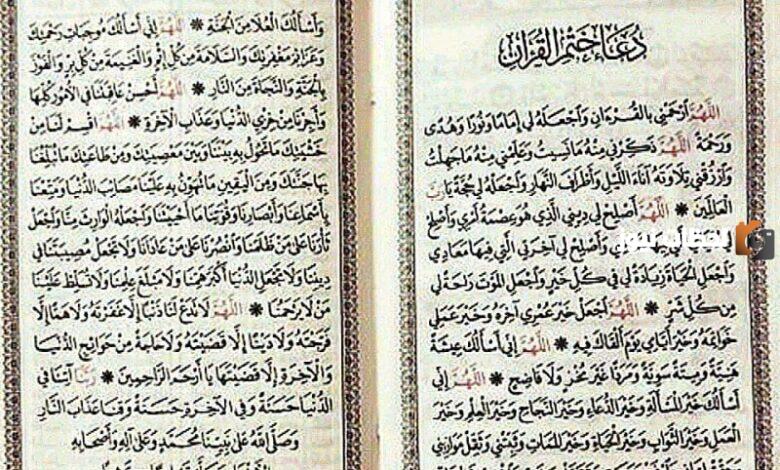 دُعَاءُ خَتْمِ الْقُرْآنِ
اللَّهُمَّ ارْحَمْنِي بِالْقُرْءَانِ وَاجْعَلْهُ لِي إِمَامًا وَنُورًا وَهُدًى
وَرَحْمَةً اللَّهُمَّ ذَكِّرْنِي مِنْهُ مَا نَسِيتُ وَعَلِّمْنِي مِنْهُ مَا جَهِلْتُ
وَارْزُقْنِي تِلَاوَتَهُ آنَاءَ اللَّيْلِ وَأَطْرَافَ النَّهَارِ وَاجْعَلْهُ لِي حُجَّةً يَا رَبَّ
الْعَالَمِينَ * اللَّهُمَّ أَصْلِحْ لِي دِينِي الَّذِي هُوَ عِصْمَةُ أَمْرِي وَأَصْلِحْ
لِي وَأَصْلِحْ لِي آخِرَتِي الَّتِي فِيهَا مَعَادِي
وَاجْعَلِ الْحَيَاةَ زِيَادَةً لِي فِي كُلِّ خَيْرٍ وَاجْعَلِ الْمَوْتَ رَاحَةً لِي
مِنْ كُلِّ شَرٍّ * اللَّهُمَّ اجْعَلْ خَيْرَ عُمْرِي آخِرَهُ وَخَيْرَ عَمَلِي
خَوَاتِمَهُ وَخَيْرَ أَيَّامِي يَوْمَ أَلْقَاكَ فِيهِ * اللَّهُمَّ إِنِّي أَسْأَلُكَ عِيشَةً
هَنِيَّةً وَمِيتَةً سَوِيَّةً وَمَرَدًّا غَيْرَ مُخْزٍ وَلَا فَاضِحٍ * اللَّهُمَّ إِنِّي
أَسْأَلُكَ خَيْرَ الْمَسْأَلَةِ وَخَيْرَ الدُّعَاءِ وَخَيْرَ النَّجَاحِ وَخَيْرَ الْعِلْمِ وَخَيْرَ
الْعَمَلِ وَخَيْرَ الثَّوَابِ وَخَيْرَ الْحَيَاةِ وَخَيْرَ الْمَمَاتِ وَثَبِّتْنِي وَثَقِّلْ مَوَازِينِي
وَأَسْأَلُكَ الْعُلَا مِنَ الْجَنَّةِ * اللَّهُمَّ إِنِّي أَسْأَلُكَ مُوجِبَاتِ رَحْمَتِكَ
وَعَزَائِمَ مَغْفِرَتِكَ وَالسَّلَامَةَ مِنْ كُلِّ إِثْمٍ وَالْغَنِيمَةَ مِنْ كُلِّ بِرٍّ وَالْفَوْزَ
بِالْجَنَّةِ وَالنَّجَاةَ مِنَ النَّارِ * اللَّهُمَّ أَحْسِنْ عَاقِبَتَنَا فِي الْأُمُورِ كُلِّهَا
وَأَجِرْنَا مِنْ خِزْيِ الدُّنْيَا وَعَذَابِ الْآخِرَةِ * اللَّهُمَّ اقْسِمْ لَنَا مِنْ
خَشْيَتِكَ مَا تَحُولُ بِهِ بَيْنَنَا وَبَيْنَ مَعْصِيَتِكَ وَمِنْ طَاعَتِكَ مَا تُبَلِّغُنَا
بِهَا جَنَّتَكَ وَمِنَ الْيَقِينِ مَا تُهَوِّنُ بِهِ عَلَيْنَا مَصَائِبَ الدُّنْيَا وَمَتِّعْنَا
بِأَسْمَاعِنَا وَأَبْصَارِنَا وَقُوَّتِنَا مَا أَحْيَيْتَنَا وَاجْعَلْهُ الْوَارِثَ مِنَّا وَاجْعَلْ
ثَأْرَنَا عَلَى مَنْ ظَلَمَنَا وَانْصُرْنَا عَلَى مَنْ عَادَانَا وَلَا تَجْعَلْ مُصِيبَتَنَا فِي
دِينِنَا وَلَا تَجْعَلِ الدُّنْيَا أَكْبَرَ هَمِّنَا وَلَا مَبْلَغَ عِلْمِنَا وَلَا تُسَلِّطْ عَلَيْنَا
مَنْ لَا يَرْحَمُنَا * اللَّهُمَّ لَا تَدَعْ لَنَا ذَنْبًا إِلَّا غَفَرْتَهُ وَلَا هَمًّا إِلَّا
فَرَّجْتَهُ وَلَا دَيْنًا إِلَّا قَضَيْتَهُ وَلَا حَاجَةً مِنْ حَوَائِجِ الدُّنْيَا
وَالْآخِرَةِ إِلَّا قَضَيْتَهَا يَا أَرْحَمَ الرَّاحِمِينَ * رَبَّنَا آتِنَا فِي
الدُّنْيَا حَسَنَةً وَفِي الْآخِرَةِ حَسَنَةً وَقِنَا عَذَابَ النَّارِ
وَصَلَّى اللَّهُ عَلَى نَبِيِّنَا مُحَمَّدٍ وَعَلَى آلِهِ وَأَصْحَابِهِ